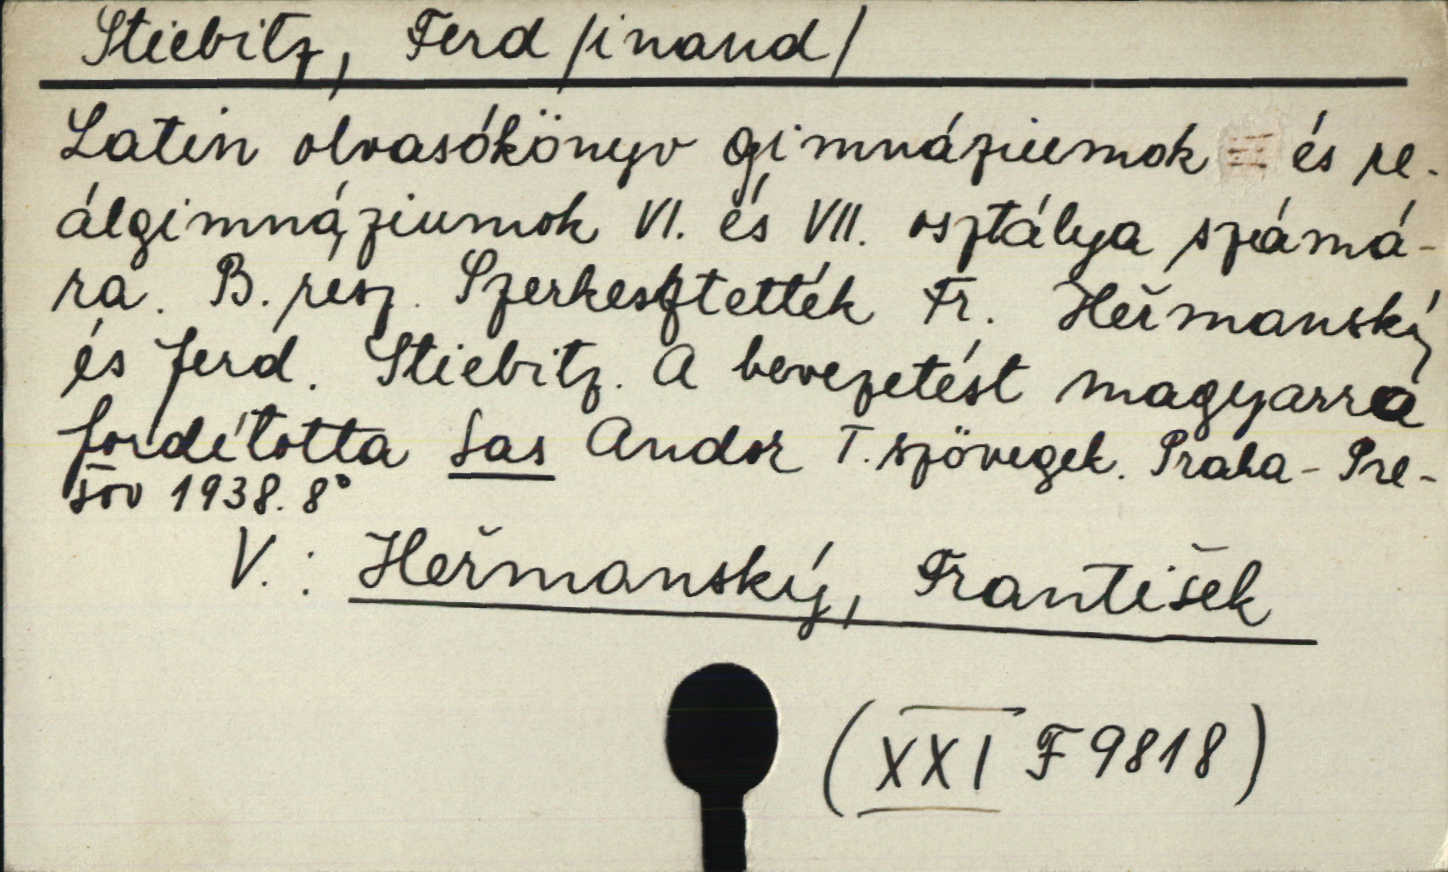 Stiebitz, Ferd /inand/
Latin olvasókönyv gimnáziumok és re-
álgimnáziumok VI. és VII. osztálya számá-
ra. B. resz. Szerkesztették Fr. Heřmanský
és Ferd. Stiebitz. A bevezetést magyarra
fordította Sas Andor T. szövegek. Praha - Pre-
šov 1938. 8°
V.: Heřmanský, František
(XXI F 9818)